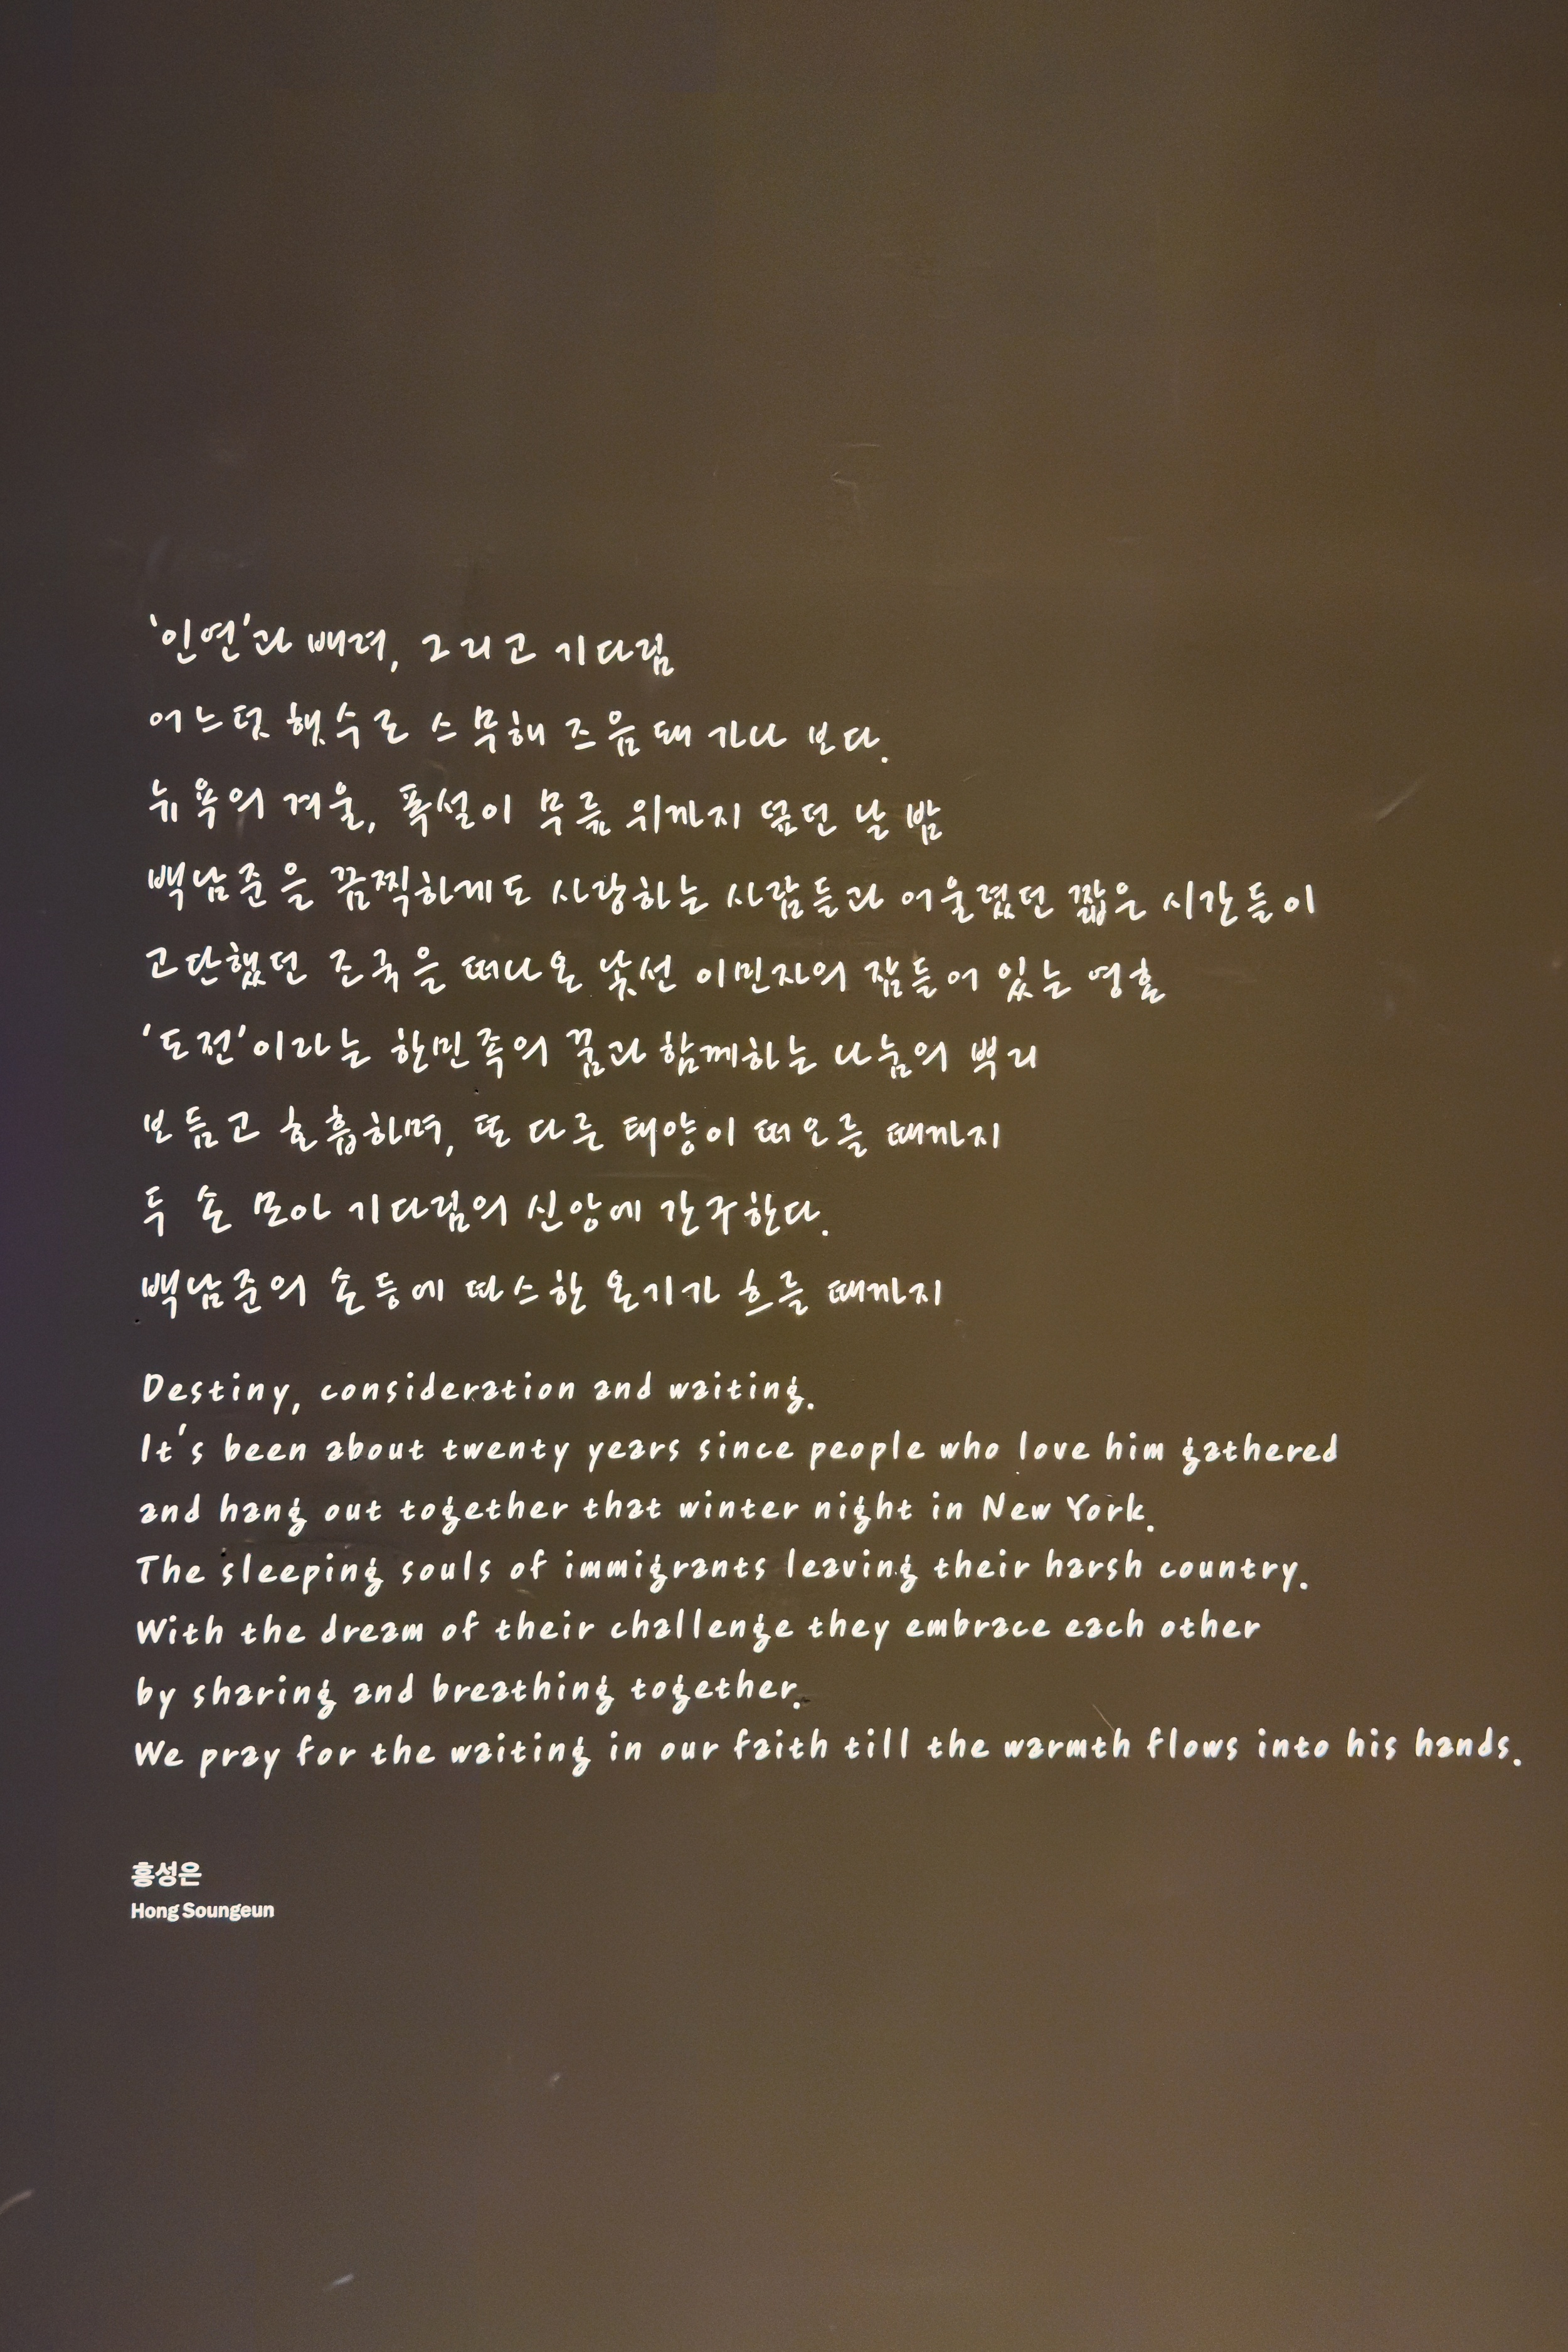 ‘인연’과 배려, 그리고 기다림
어느덧 햇수로 스무해 즈음 돼 가나 보다.
뉴욕의 겨울, 폭설이 무릎 위까지 덮던 날 밤
백남준을 끔찍하게도 사랑하는 사람들과 어울렸던 짧은 시간들이
고단했던 조국을 떠나온 낯선 이민자의 잠들어 있는 영혼
‘도전’이라는 한민족의 꿈과 함께하는 나눔의 뿌리
보듬고 호흡하며, 또 다른 태양이 떠오를 때까지
두 손 모아 기다림의 신앙에 간구한다.
백남준의 손등에 따스한 온기가 흐를 때까지
Destiny, consideration and waiting.
It's been about twenty years since people who love him gathered
and hang out together that winter night in New York.
The sleeping souls of immigrants leaving their harsh country.
With the dream of their challenge they embrace each other
by sharing and breathing together.
We pray for the waiting in our faith till the warmth flows into his hands.
홍성은
Hong Soungeun